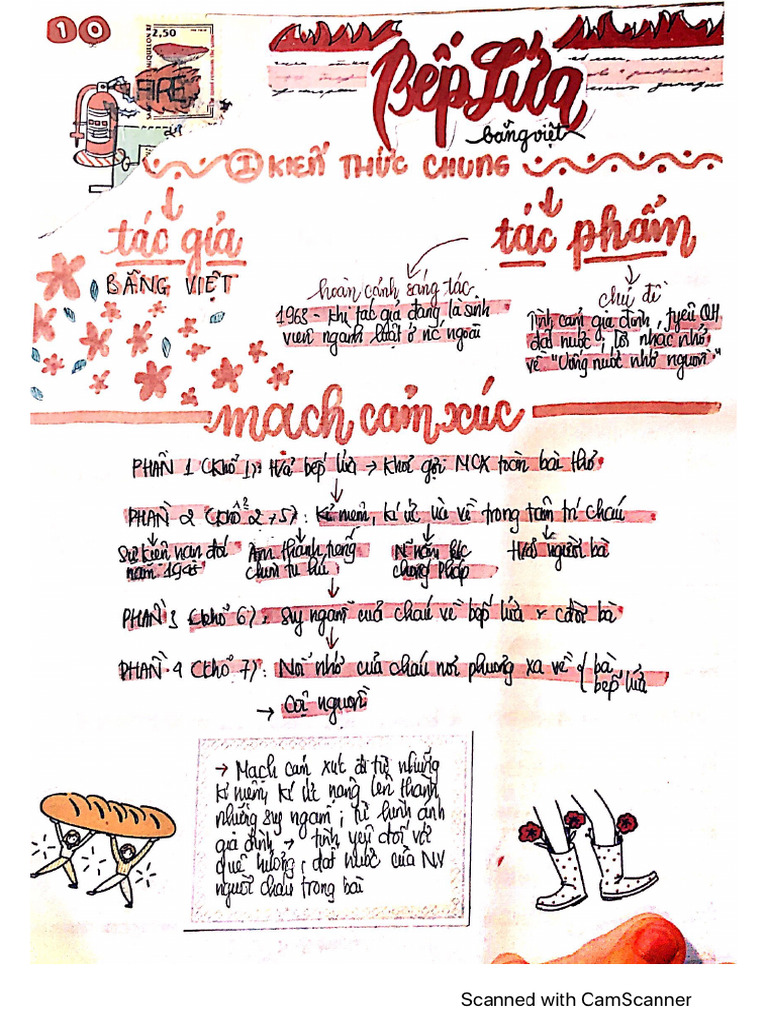 10
2,50
FIRE
Bếp Lửa
bằng việt
I KIẾN THỨC CHUNG
tác giả
tác phẩm
BẰNG VIỆT
hoàn cảnh sáng tác
1963 - khi tác giả đang là sinh
viên ngành luật ở nc ngoài
chủ đề
Tình cảm gia đình, tyêu QH
đất nước, lời nhắc nhở
về "Uống nước nhớ nguồn"
mạch cảm xúc
PHẦN 1 (Khổ 1): H/ả bếp lửa → Khơi gợi MCX toàn bài thơ
PHẦN 2 (khổ 2→5): Kỉ niệm, kí ức ùa về trong tâm trí cháu
Sự kiện nạn đói
năm 1945
Âm thanh tiếng
chim tu hú
chống Pháp
người bà
PHẦN 3 (khổ 6): Suy ngẫm của cháu về bếp lửa & cđời bà
PHẦN 4 (khổ 7): Nỗi nhớ của cháu nơi phương xa về { bà
bếp lửa
→ Cội nguồn
→ Mạch cảm xúc đi từ những
kỉ niệm, kí ức nâng lên thành
những suy ngẫm; từ hình ảnh
gia đình → tình yêu đối với
quê hương, đất nước của NV
người cháu trong bài
Scanned with CamScanner